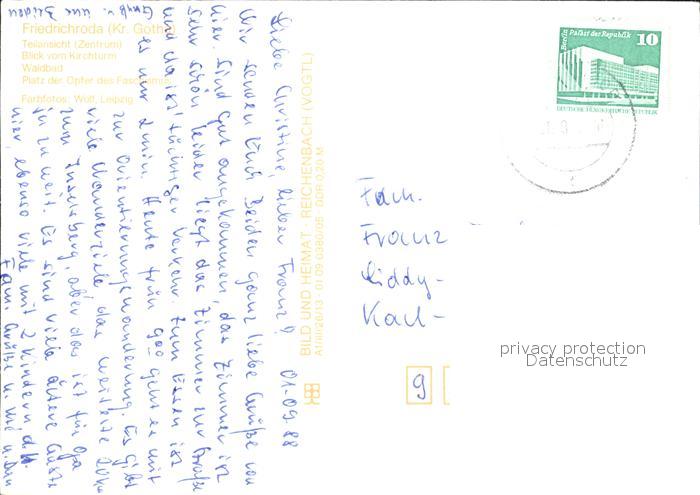 Friedrichroda (Kr. Gotha)
Teilansicht (Zentrum)
Blick vom Kirchturm
Waldbad
Platz der Opfer des Faschismus
Farbfotos: Wolf, Leipzig
BILD UND HEIMAT · REICHENBACH (VOGTL)
A1/III/26/13 · 01 09 0380/05 · DDR 0,20 M
Berlin Palast der Republik
10
DEUTSCHE DEMOKRATISCHE REPUBLIK
01.09.88
Liebe Christine, lieber Franz!
Wir senden Euch Beiden ganz liebe Grüße von
hier. Sind gut angekommen, das Zimmer ist
sehr schön, leider liegt das Zimmer zur Straße
und da ist tüchtiger Verkehr. Zum Essen ist
es nur 2 min. Heute früh 9⁰⁰ geht es mit
zur Orientierungswanderung. Es gibt
viele Wanderziele, das weiteste
zum Inselsberg, aber das ist für Opa
zu weit. Es sind viele ältere Gäste
hier, ebenso viele mit 2 Kindern
Fam.
Franz
Liddy-
Karl-
9
privacy protection
Datenschutz